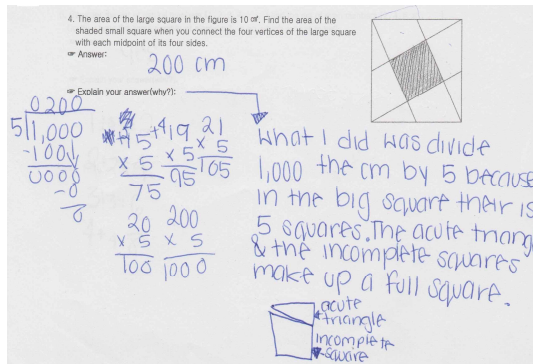 4. The area of the large square in the figure is 10 ㎠. Find the area of the
shaded small square when you connect the four vertices of the large square
with each midpoint of its four sides.
☞ Answer:
200 cm
☞ Explain your answer(why?):
0200
5 1,000
-100
0000
-0
0
15 +4 19 21
x 5 x 5 x 5
75 95 105
20 200
x 5 x 5
100 1000
What I did was divide
1,000 the cm by 5 because
in the big square their is
5 squares. The acute triang
& the incomplete squares
make up a full square.
acute
triangle
incomplete
square